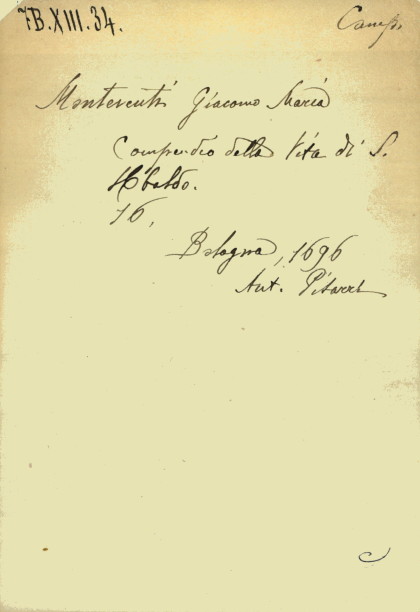 7B.XIII.34.
Montecenti Giacomo Maria
Compendio della Vita di S.
Ubaldo.
16,
Bologna, 1696
Ant. Pisarri